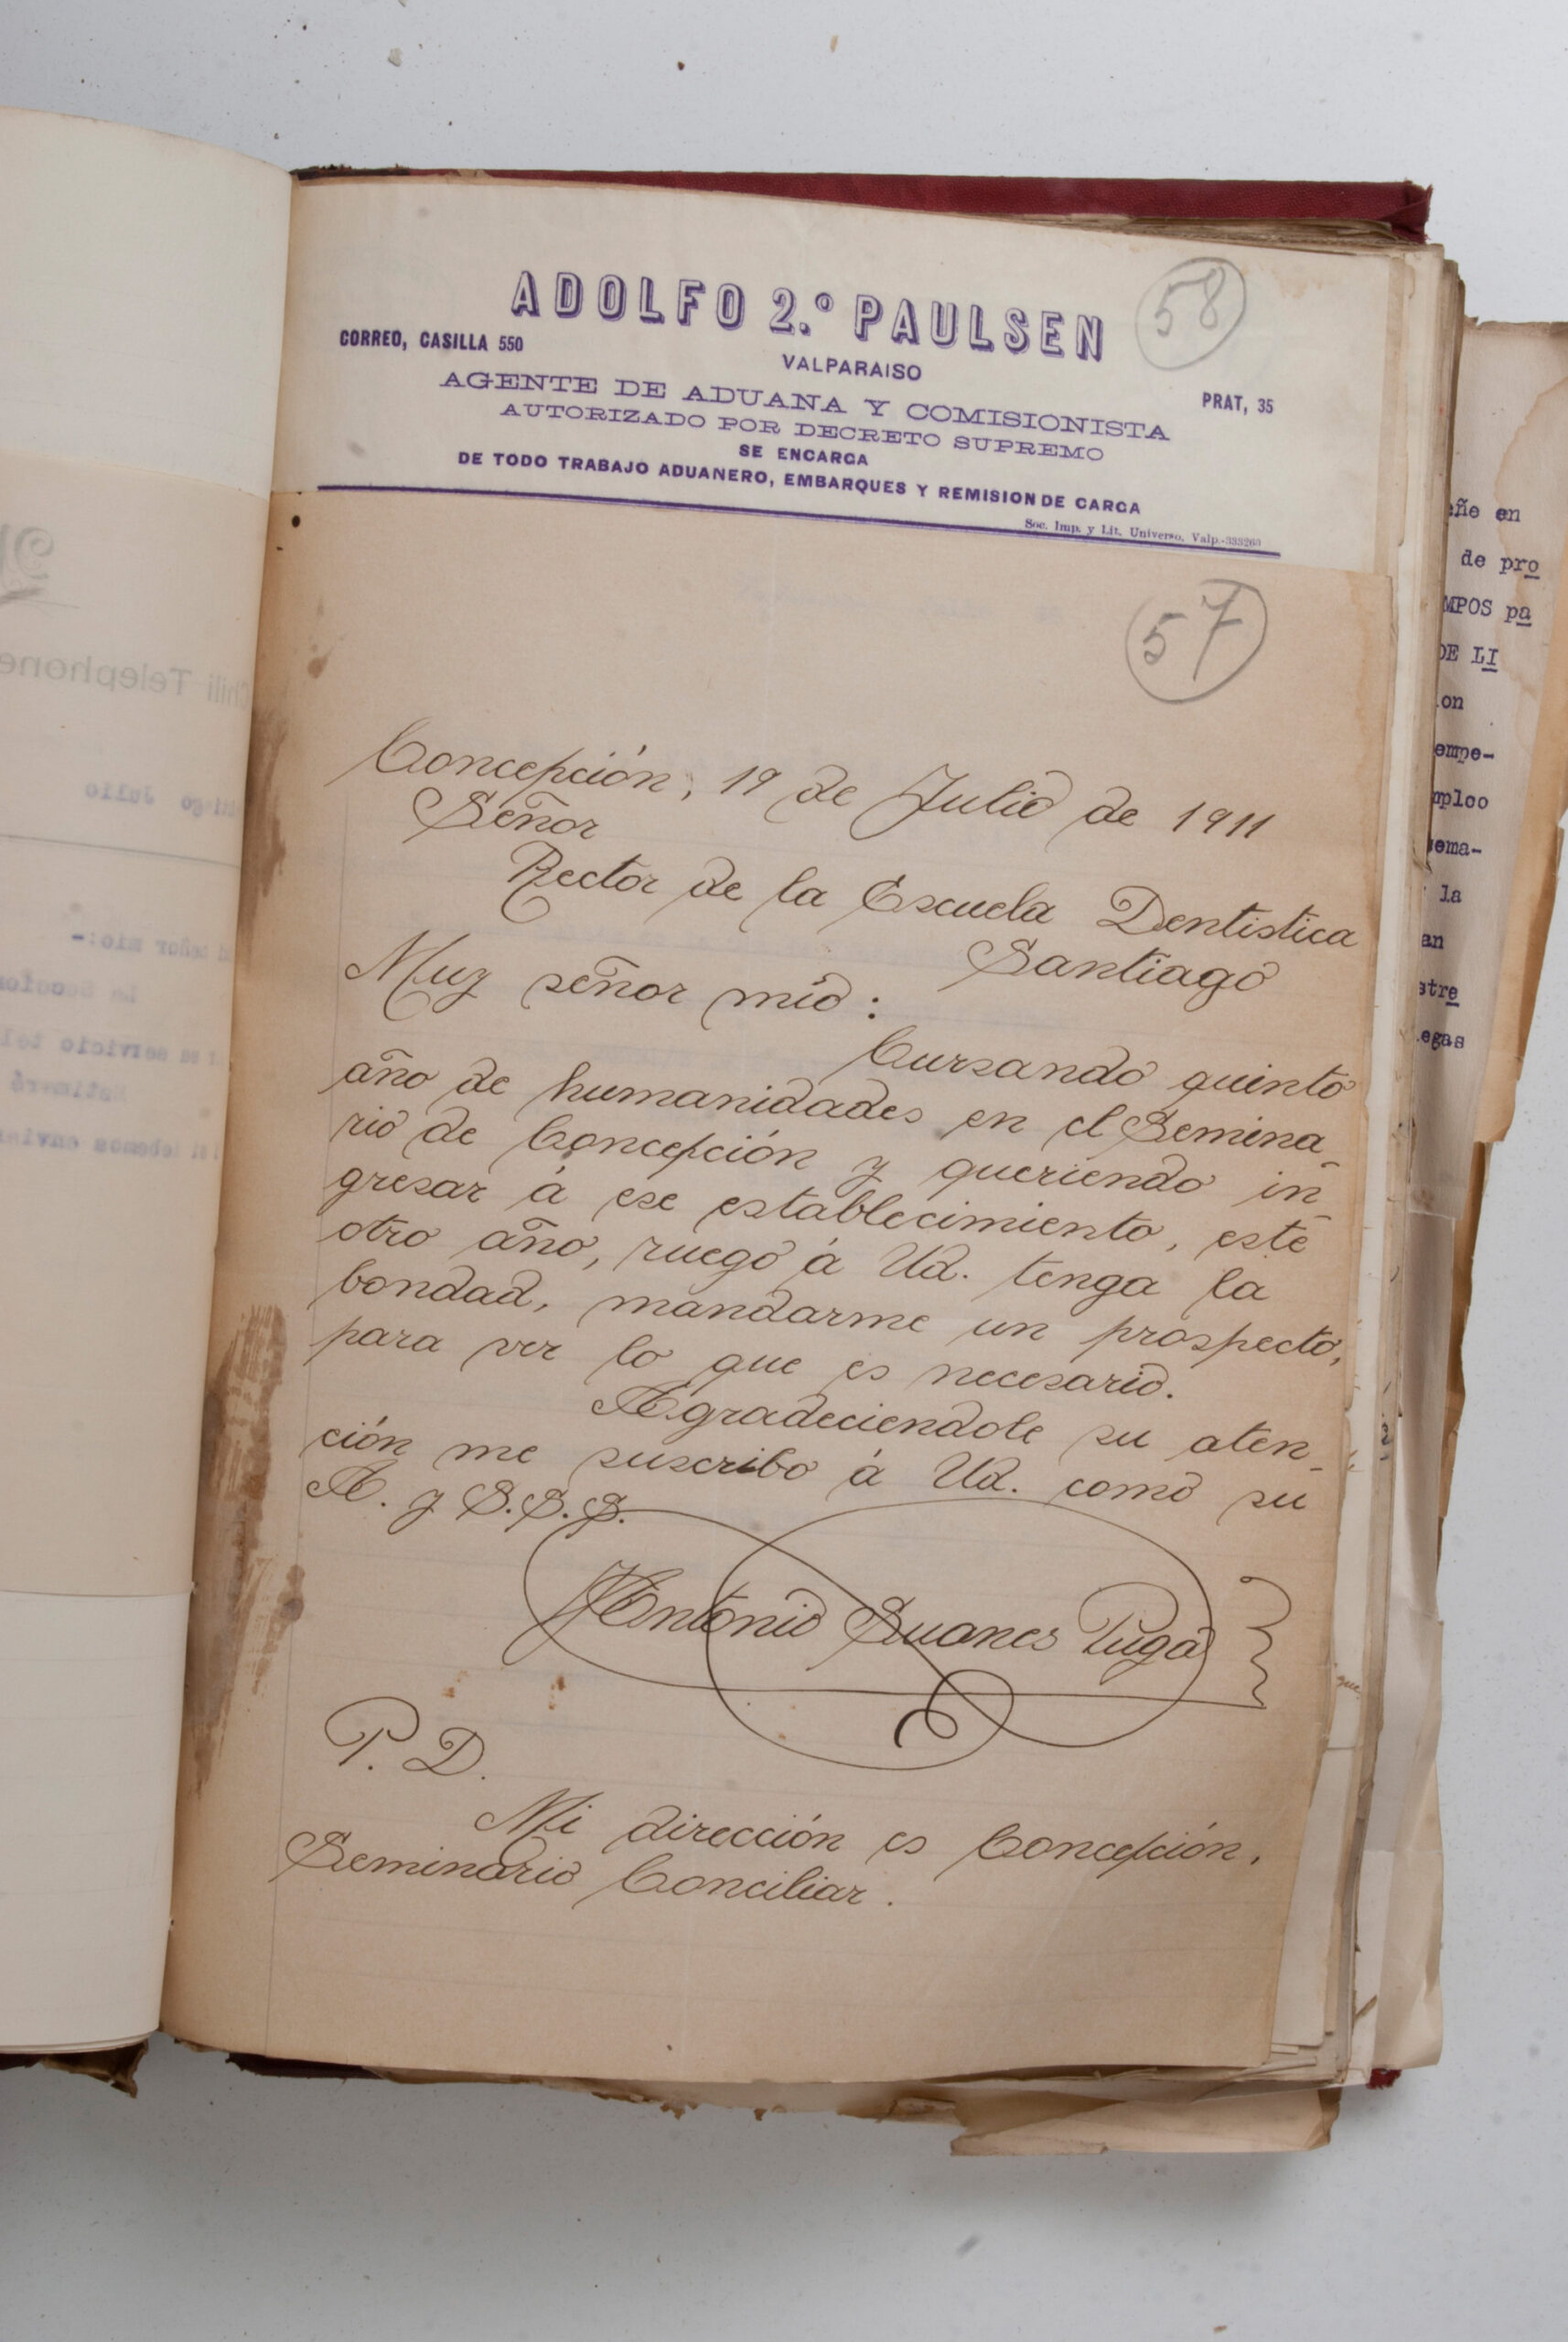 ADOLFO 2.º PAULSEN
58
CORREO, CASILLA 550
VALPARAISO
PRAT, 35
AGENTE DE ADUANA Y COMISIONISTA
AUTORIZADO POR DECRETO SUPREMO
SE ENCARGA
DE TODO TRABAJO ADUANERO, EMBARQUES Y REMISION DE CARGA
Soc. Imp. y Lit. Universo, Valp.-333260
57
Concepción, 19 de Julio de 1911
Señor
Rector de la Escuela Dentistica
Santiago
Muy señor mío:
Cursando quinto
año de humanidades en el Semina-
rio de Concepción y queriendo in-
gresar á ese establecimiento, este
otro año, ruego á Ud. tenga la
bondad, mandarme un prospecto,
para ver lo que es necesario.
Agradeciendole su aten-
ción me suscribo á Ud. como su
A. y S.S.S.
Antonio Suanes Puga
P. D.
Mi dirección es Concepción,
Seminario Conciliar.
eñe en
de pro
MPOS pa
DE LI
on
empe-
mpleo
sema-
la
an
stre
egas
Chili Telephone
Julio
señor mio:-
servicio tel
debemos enviar